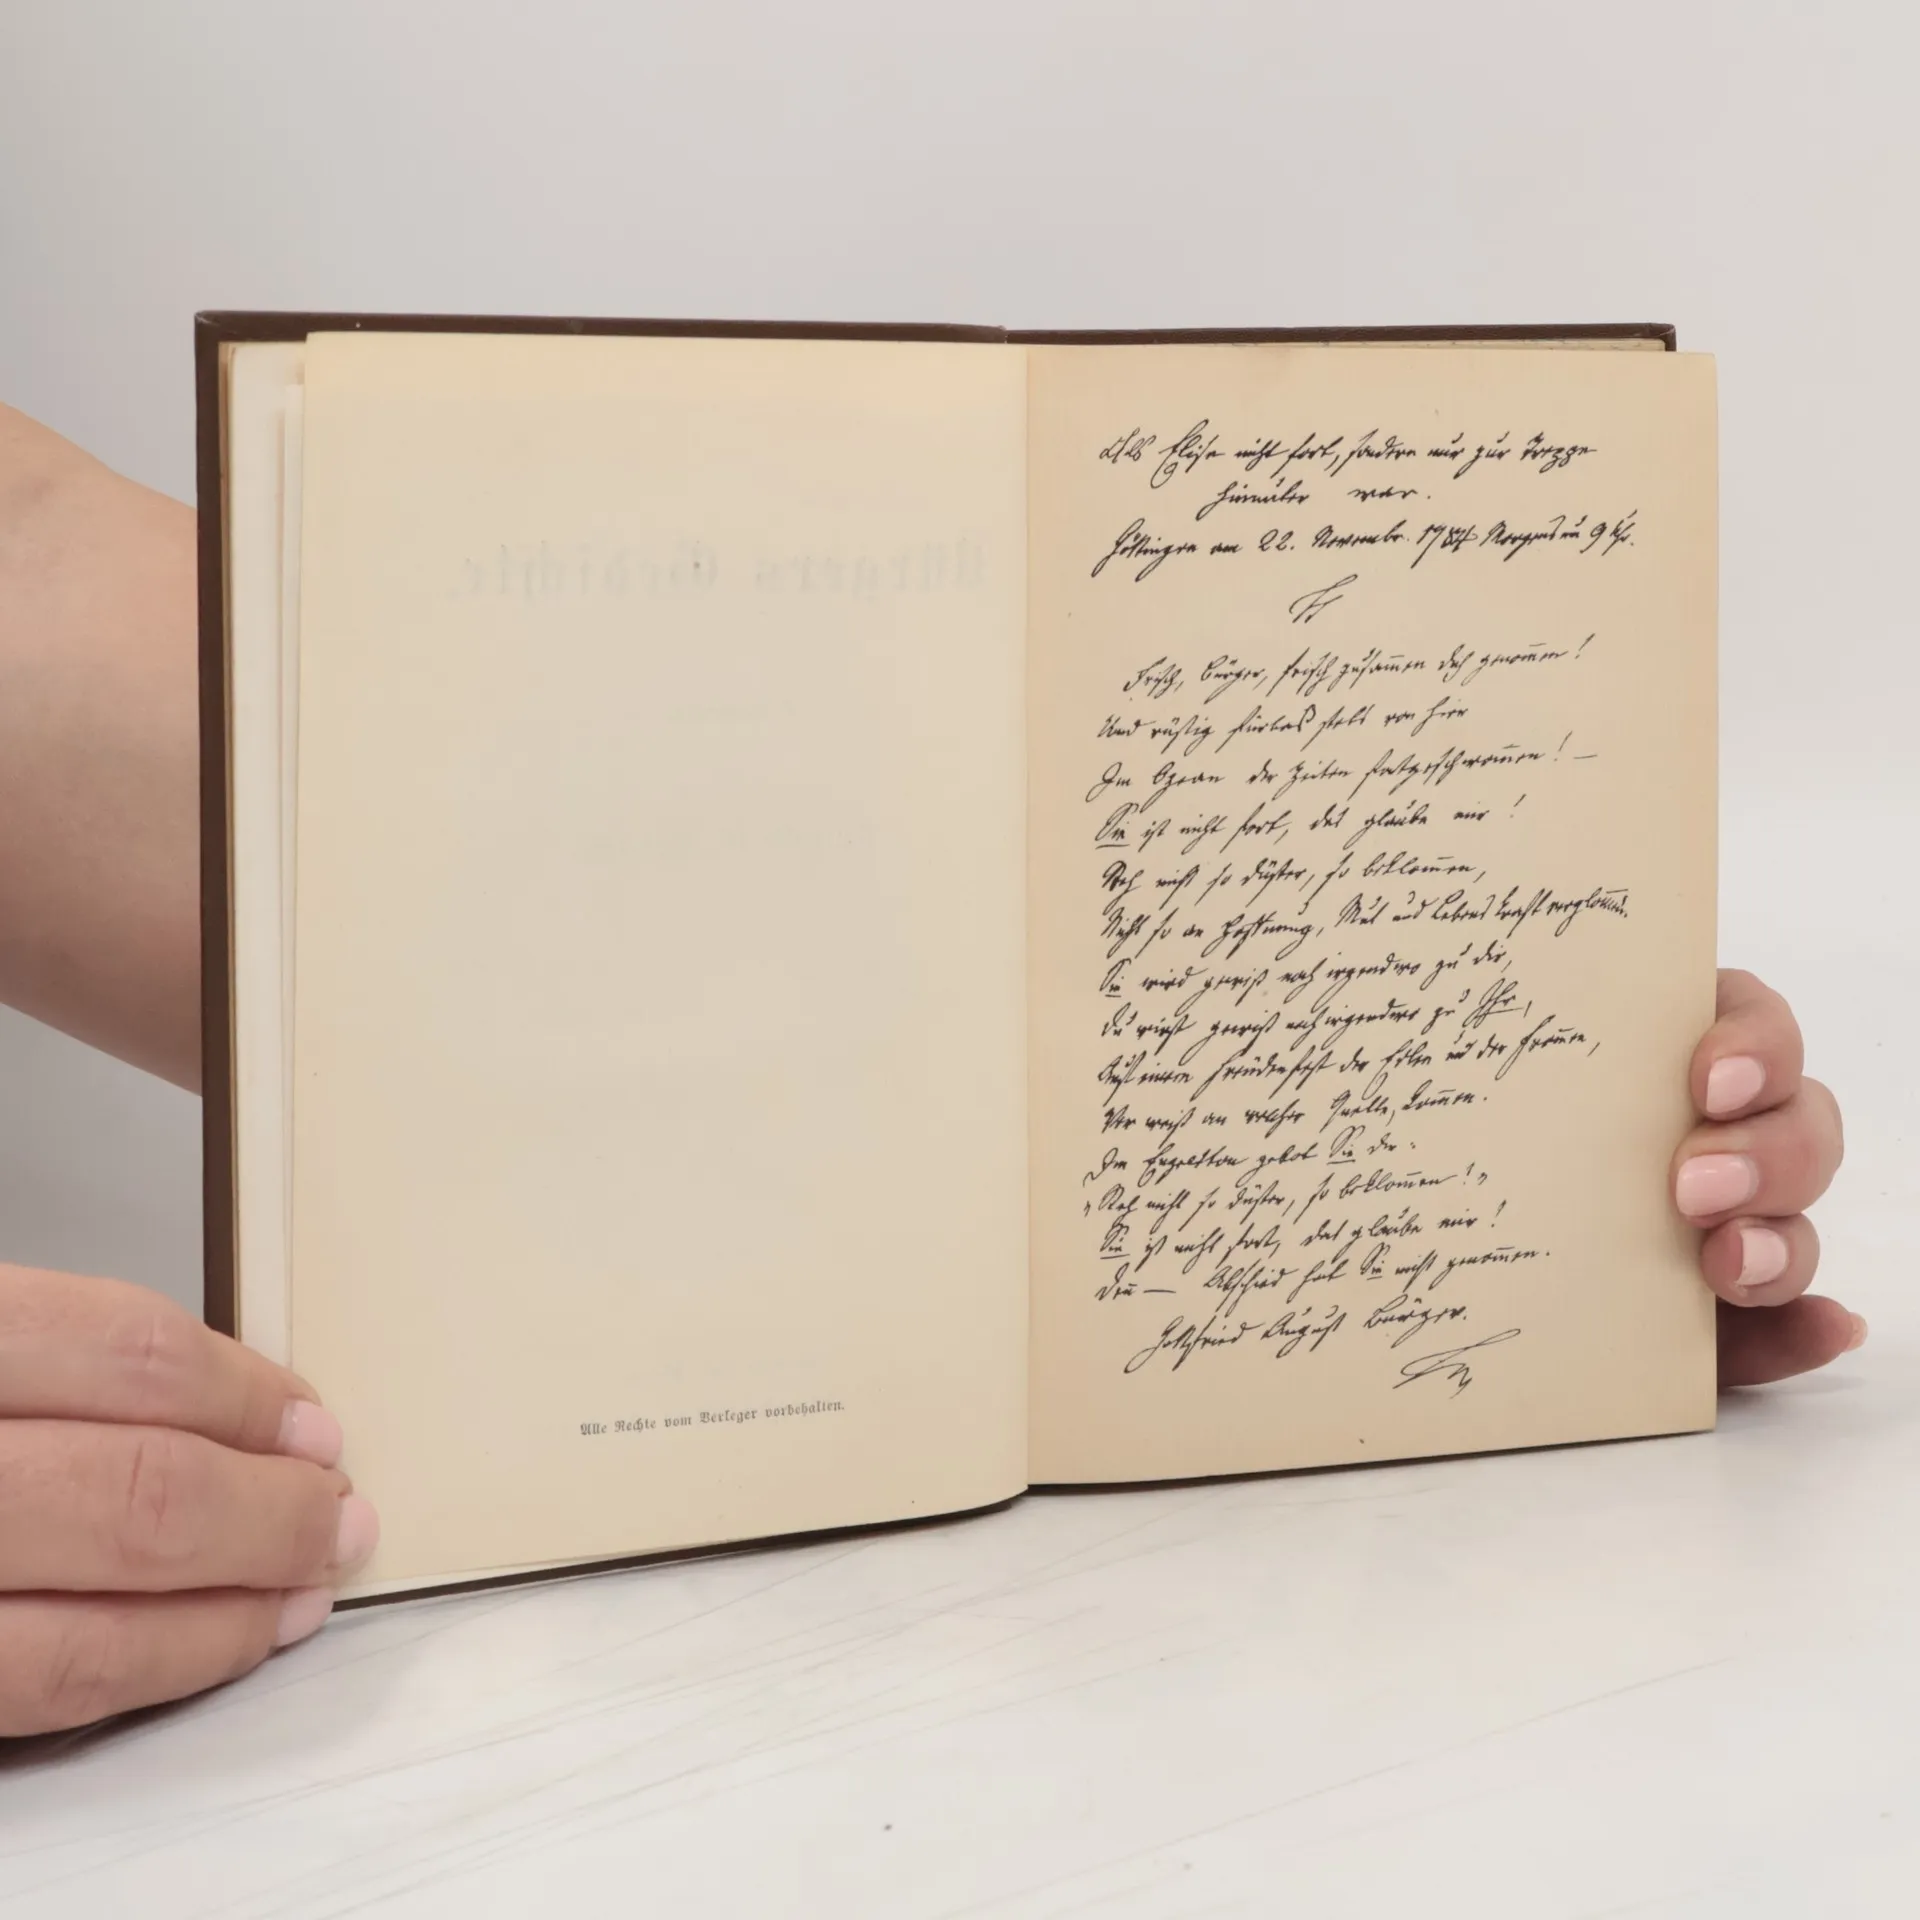 Alle Rechte vom Verleger vorbehalten.
Als Elise nicht fort, sondern nur zur Treppe
hinunter war.
Göttingen am 22. Novembr. 1784 Morgens um 9 Uhr.
Frisch, Bürger, frisch zusam̄en dich genom̄en!
Und rüstig fürbaß stets von hier
Im Ozean der Zeiten fortgeschwom̄en! —
Sie ist nicht fort, das glaube mir!
Steh nicht so düster, so beklom̄en,
Nicht so an Hoffnung, Mut und Lebenskraft verglom̄en.
Sie wird gewiß noch irgendwo zu dir,
Du wirst gewiß noch irgendwo zu Ihr,
Auf einem Freudenfest der Edlen und der From̄en,
Wer weiß an welcher Quelle, kom̄en.
Im Engelston gebot Sie dir:
„Steh nicht so düster, so beklom̄en!"
Sie ist nicht fort, das glaube mir!
Den̄ — Abschied hat Sie nicht genom̄en.
Gottfried August Bürger.